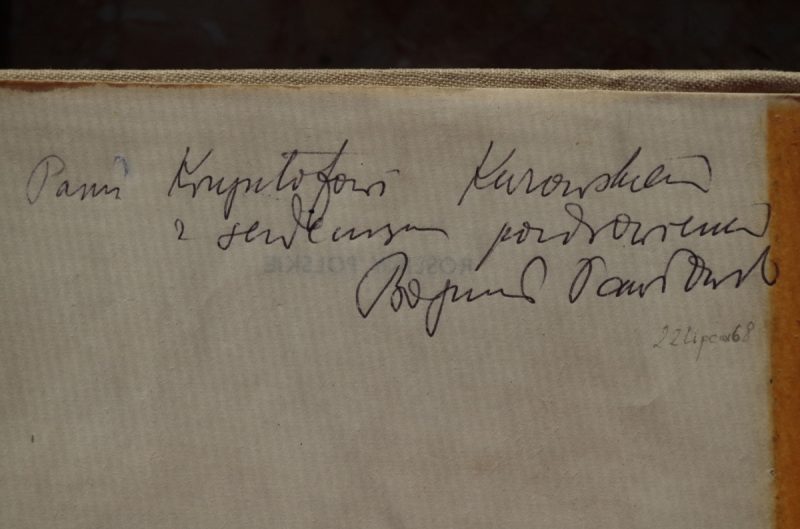 Panu Krzysztofowi Kurowskiemu
z serdecznym pozdrowieniem
Bogumił Pawłowski
22 Lipca 68
ROŚLINY POLSKIE